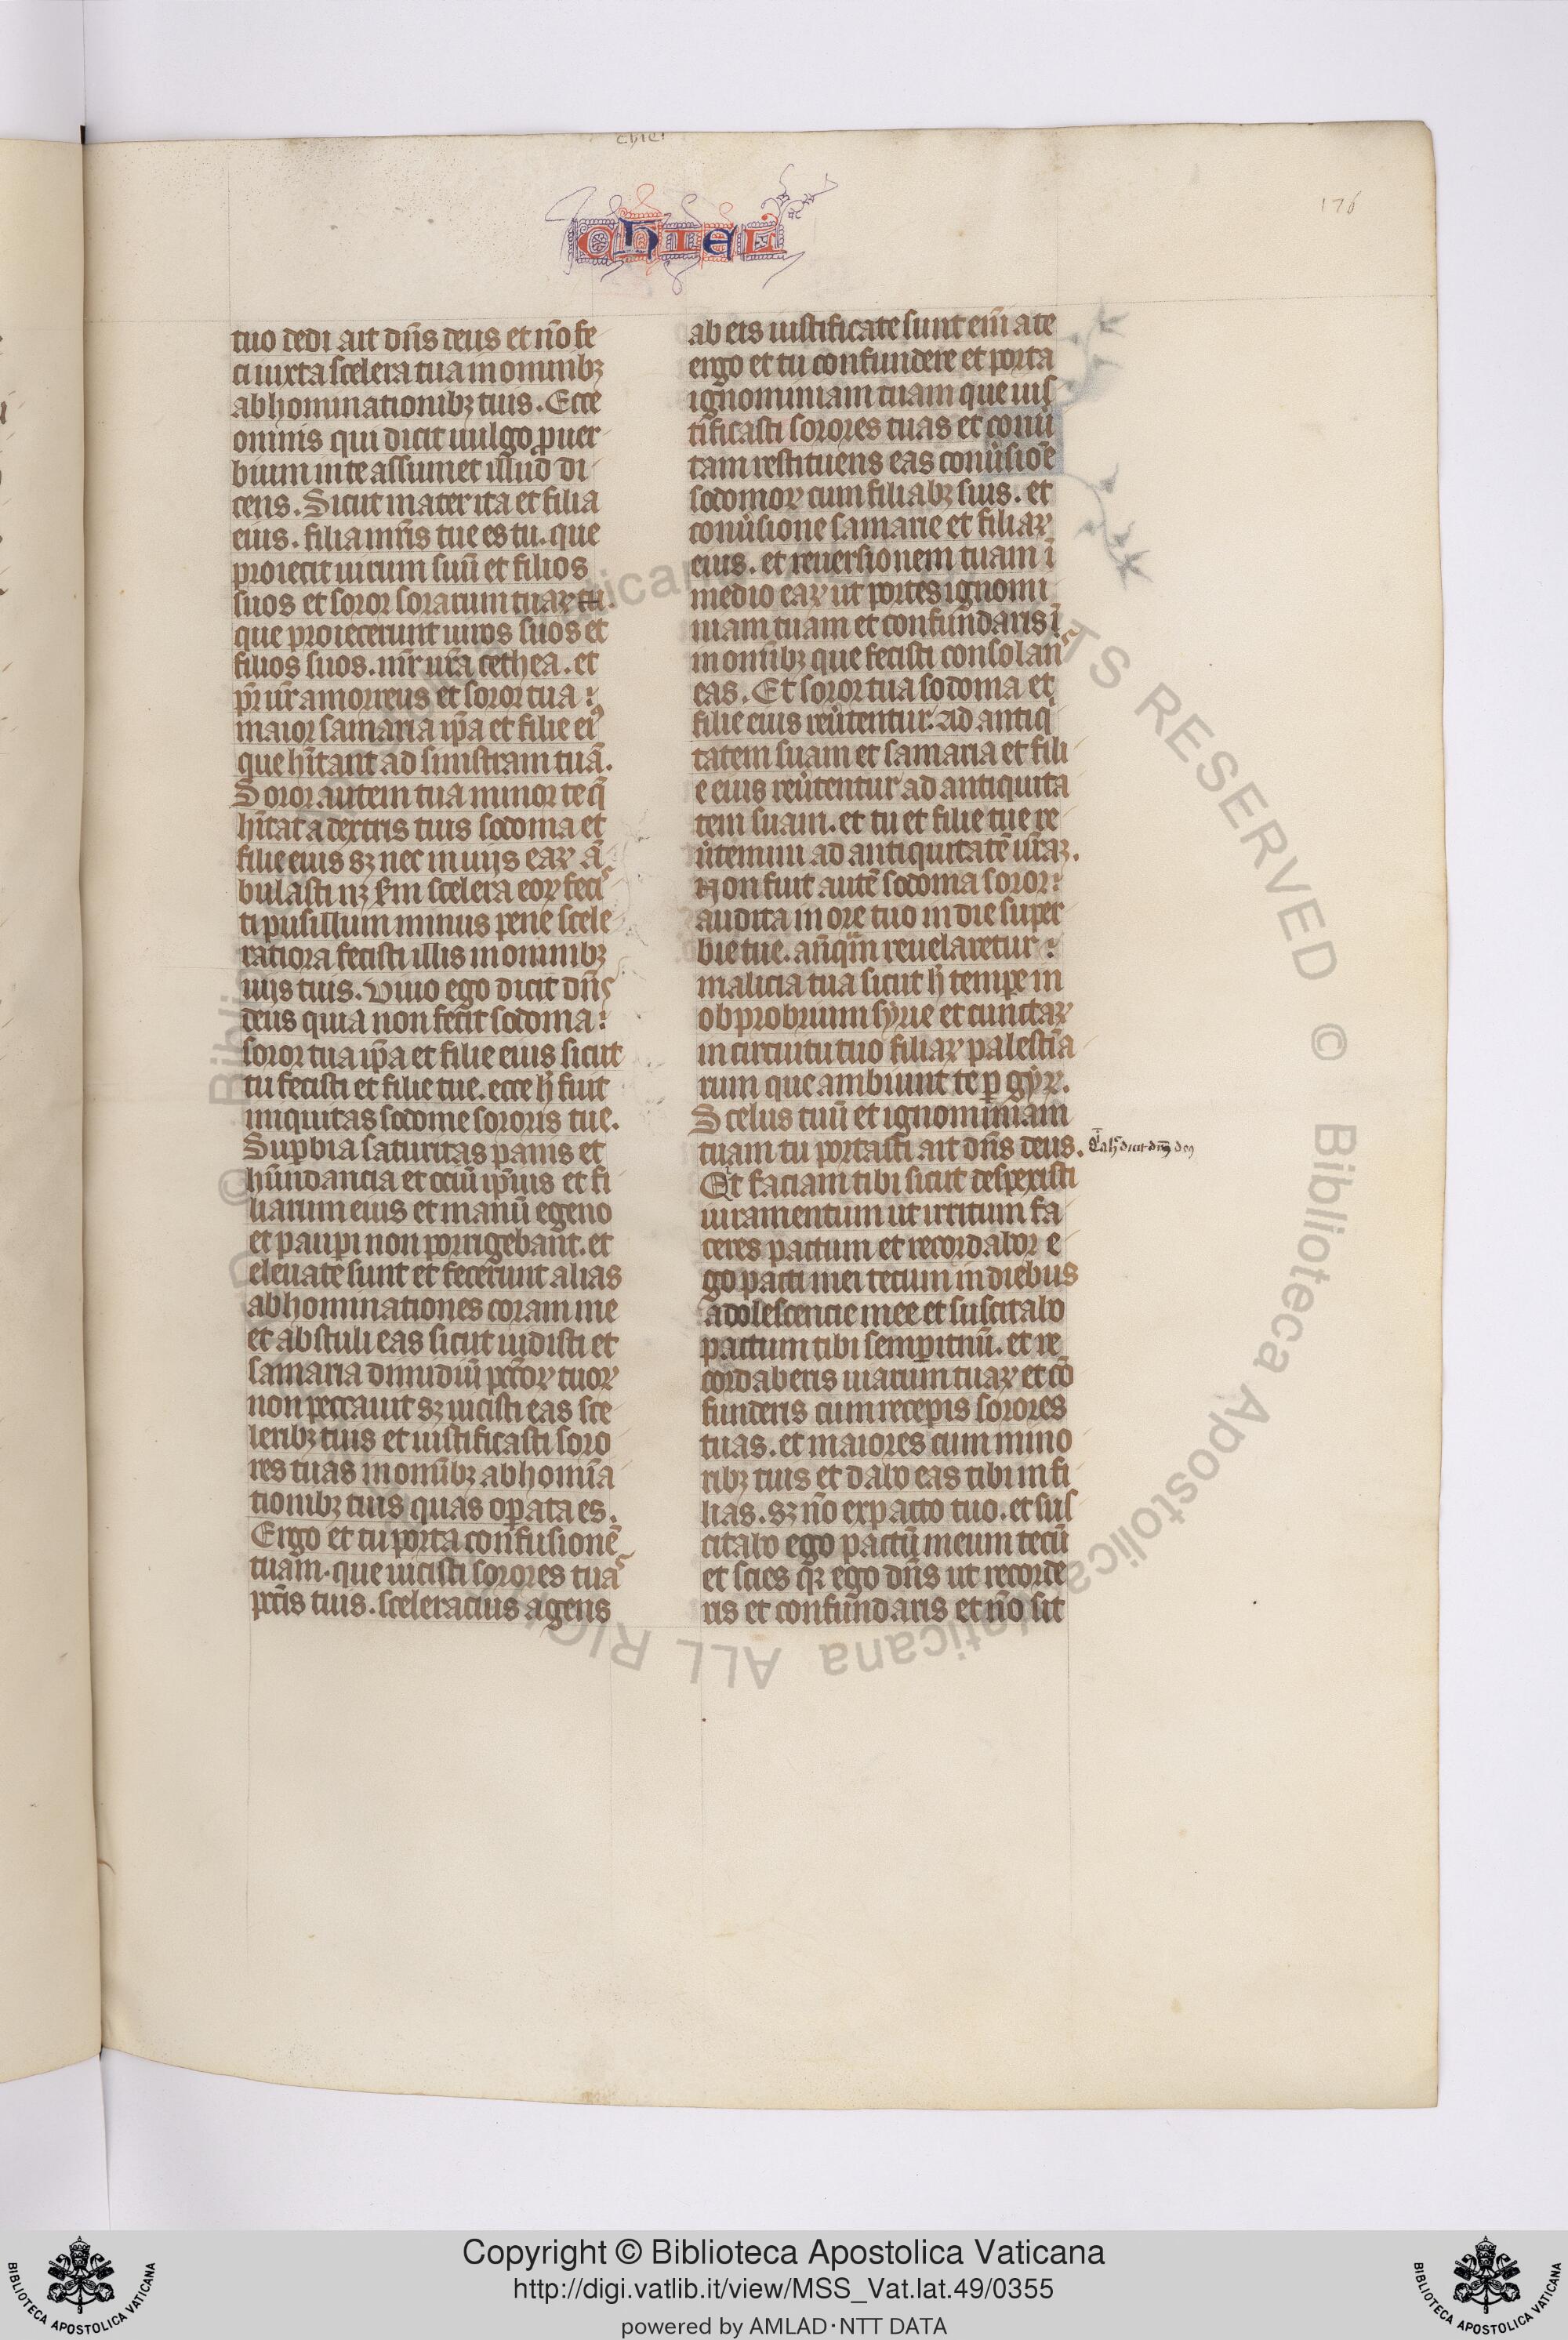 chie.
176
CHIEL
tuo dedi ait dn̄s deus et nō fe
ci iuxta scelera tua in omnibꝫ
abhominationibꝫ tuis. Ecce
omnis qui dicit uulgo ꝓuer
bium in te assumet illud di
cens. Sicut mater ita et filia
eius. filia mr̄is tue es tu. que
proiecit uirum suū et filios
suos et soror sorarum tuaꝝ tu.
que proiecerunt uiros suos et
filios suos. mr̄ ur̄a cethea. et
pr̄ ur̄ amorreus et soror tua
maior samaria ip̄a et filie eiꝰ
que hītant ad sinistram tuā.
Soror autem tua minor te q̄
hītat a dextris tuis sodoma et
filie eius sꝫ nec in uijs eaꝝ ā
bulasti nꝫ sc̄dm scelera eoꝝ fecis
ti pusillum minus pene scele
ratiora fecisti illis in omnibꝫ
uijs tuis. Viuo ego dicit dn̄s
deus quia non fecit sodoma
soror tua ip̄a et filie eius sicut
tu fecisti et filie tue. ecce h̄ fuit
iniquitas sodome sororis tue.
Suꝑbia saturitas panis et
hūndancia et ociū ip̄ius et fi
liarum eius et manū egeno
et pauꝑi non porrigebant. et
eleuate sunt et fecerunt alias
abhominationes coram me
et abstuli eas sicut uidisti et
samaria dimidiū pct̄oꝝ tuoꝝ
non peccauit sꝫ uicisti eas sce
leribꝫ tuis et iustificasti soro
res tuas in omībꝫ abhomīa
tionibꝫ tuis quas oꝑata es.
Ergo et tu porta confusionē
tuam. que uicisti sorores tuas
pct̄is tuis. sceleracius agens
ab eis iustificate sunt eī a te
ergo et tu confundere et porta
ignominiam tuam que ius
tificasti sorores tuas et conū
tam restituens eas conūsionē
sodomoꝝ cum filiabꝫ suis. et
conūsione samarie et filiaꝝ
eius. et reuersionem tuam ī
medio eaꝝ ut portes ignomi
niam tuam et confundaris ī
in omībꝫ que fecisti consolans
eas. Et soror tua sodoma et
filie eius reūtentur. ad antiqi
tatem suam et samaria et fili
e eius reūtentur ad antiquita
tem suam. et tu et filie tue re
ūtemini ad antiquitatē ur̄aꝫ.
Non fuit autē sodoma soror
audita in ore tuo in die super
bie tue. an̄qm̄ reuelaretur
malicia tua sicut h̄ tempe in
obprobrium syrie et cunctaꝝ
in circuitu tuo filiaꝝ palestīa
rum que ambiunt te ꝑ gyꝝ.
Scelus tuū et ignominiam
tuam tu portasti ait dn̄s deus.
Et faciam tibi sicut despexisti
iuramentum ut irritum fa
ceres pactum et recordabor e
go pacti mei tecum in diebus
adolescencie mee et suscitabo
pactum tibi sempit̄nū. et re
cordaberis uiarum tuaꝝ et cō
funderis cum receꝑis sorores
tuas. et maiores cum mino
ribꝫ tuis et dabo eas tibi in fi
lias. sꝫ nō ex pacto tuo. et sus
citabo ego pactū meum tecū
et scies qꝛ ego dn̄s ut recorde
ris et confundaris et nō sit
Copyright © Biblioteca Apostolica Vaticana
http://digi.vatlib.it/view/MSS_Vat.lat.49/0355
powered by AMLAD·NTT DATA
BIBLIOTECA APOSTOLICA VATICANA
BIBLIOTECA APOSTOLICA VATICANA